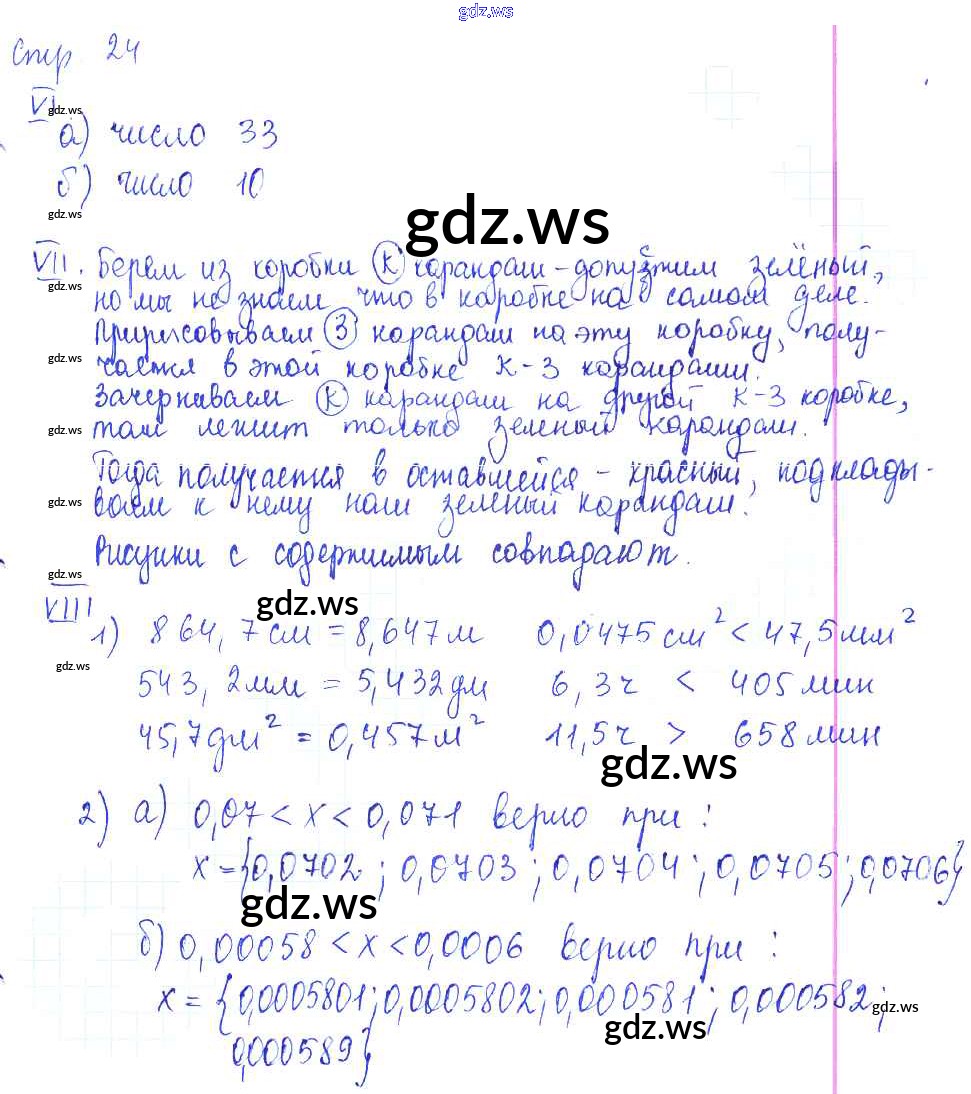 gdz.ws
Стр 24
VI
gdz.ws
а) число 33
б) число 10
gdz.ws
gdz.ws
VII. Берем из коробки (К) карандаш - допустим зелёный,
gdz.ws
но мы не знаем что в коробке на самом деле.
Пририсовываем (З) карандаш на эту коробку, полу-
gdz.ws
чается в этой коробке К-З карандаши.
Зачеркиваем (К) карандаш на другой К-З коробке,
gdz.ws
там лежит только зеленый карандаш.
Тогда получается в оставшейся - красный, подклады-
gdz.ws
ваем к нему наш зеленый карандаш.
Рисунки с содержимым совпадают.
gdz.ws
gdz.ws
VIII
1) 864,7см = 8,647м 0,0475см² < 47,5мм²
gdz.ws
543,2мм = 5,432дм 6,3ч < 405мин
45,7дм² = 0,457м² 11,5ч > 658мин
gdz.ws
2) а) 0,07 < x < 0,071 верно при:
x = {0,0702; 0,0703; 0,0704; 0,0705; 0,0706}
gdz.ws
б) 0,00058 < x < 0,0006 верно при:
x = {0,0005801; 0,0005802; 0,000581; 0,000582;
gdz.ws
gdz.ws
0,000589}